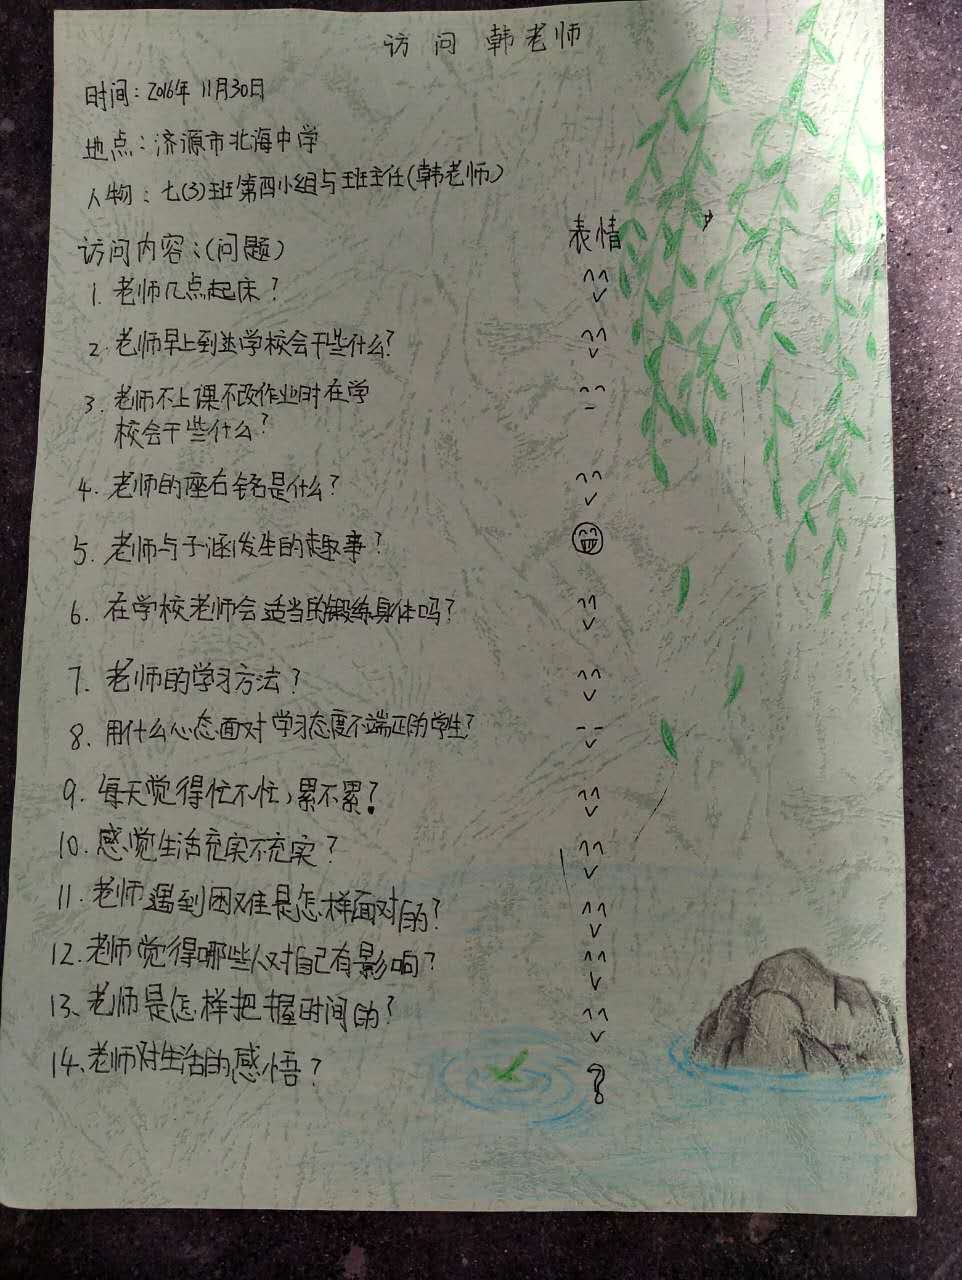 访问 韩老师
时间：2016年11月30日
地点：济源市北海中学
人物：七(3)班第四小组与班主任(韩老师)
访问内容：(问题)
表情
1. 老师几点起床？
2. 老师早上到达学校会干些什么？
3. 老师不上课不改作业时在学
校会干些什么？
4. 老师的座右铭是什么？
5. 老师与子涵发生的趣事？
6. 在学校老师会适当的锻练身体吗？
7. 老师的学习方法？
8. 用什么心态面对学习态度不端正的学生？
9. 每天觉得忙不忙，累不累？
10. 感觉生活充实不充实？
11. 老师遇到困难是怎样面对的？
12. 老师觉得哪些人对自己有影响？
13、老师是怎样把握时间的？
14、老师对生活的感悟？